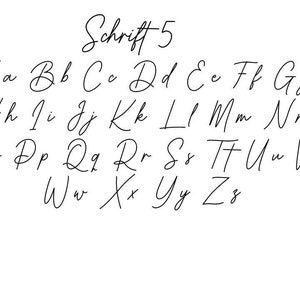 Schrift 5
a Bb Cc Dd Ee Ff G
h Ii Jj Kk Ll Mm N
Pp Qq Rr Ss Tt Uu
Ww Xx Yy Zz